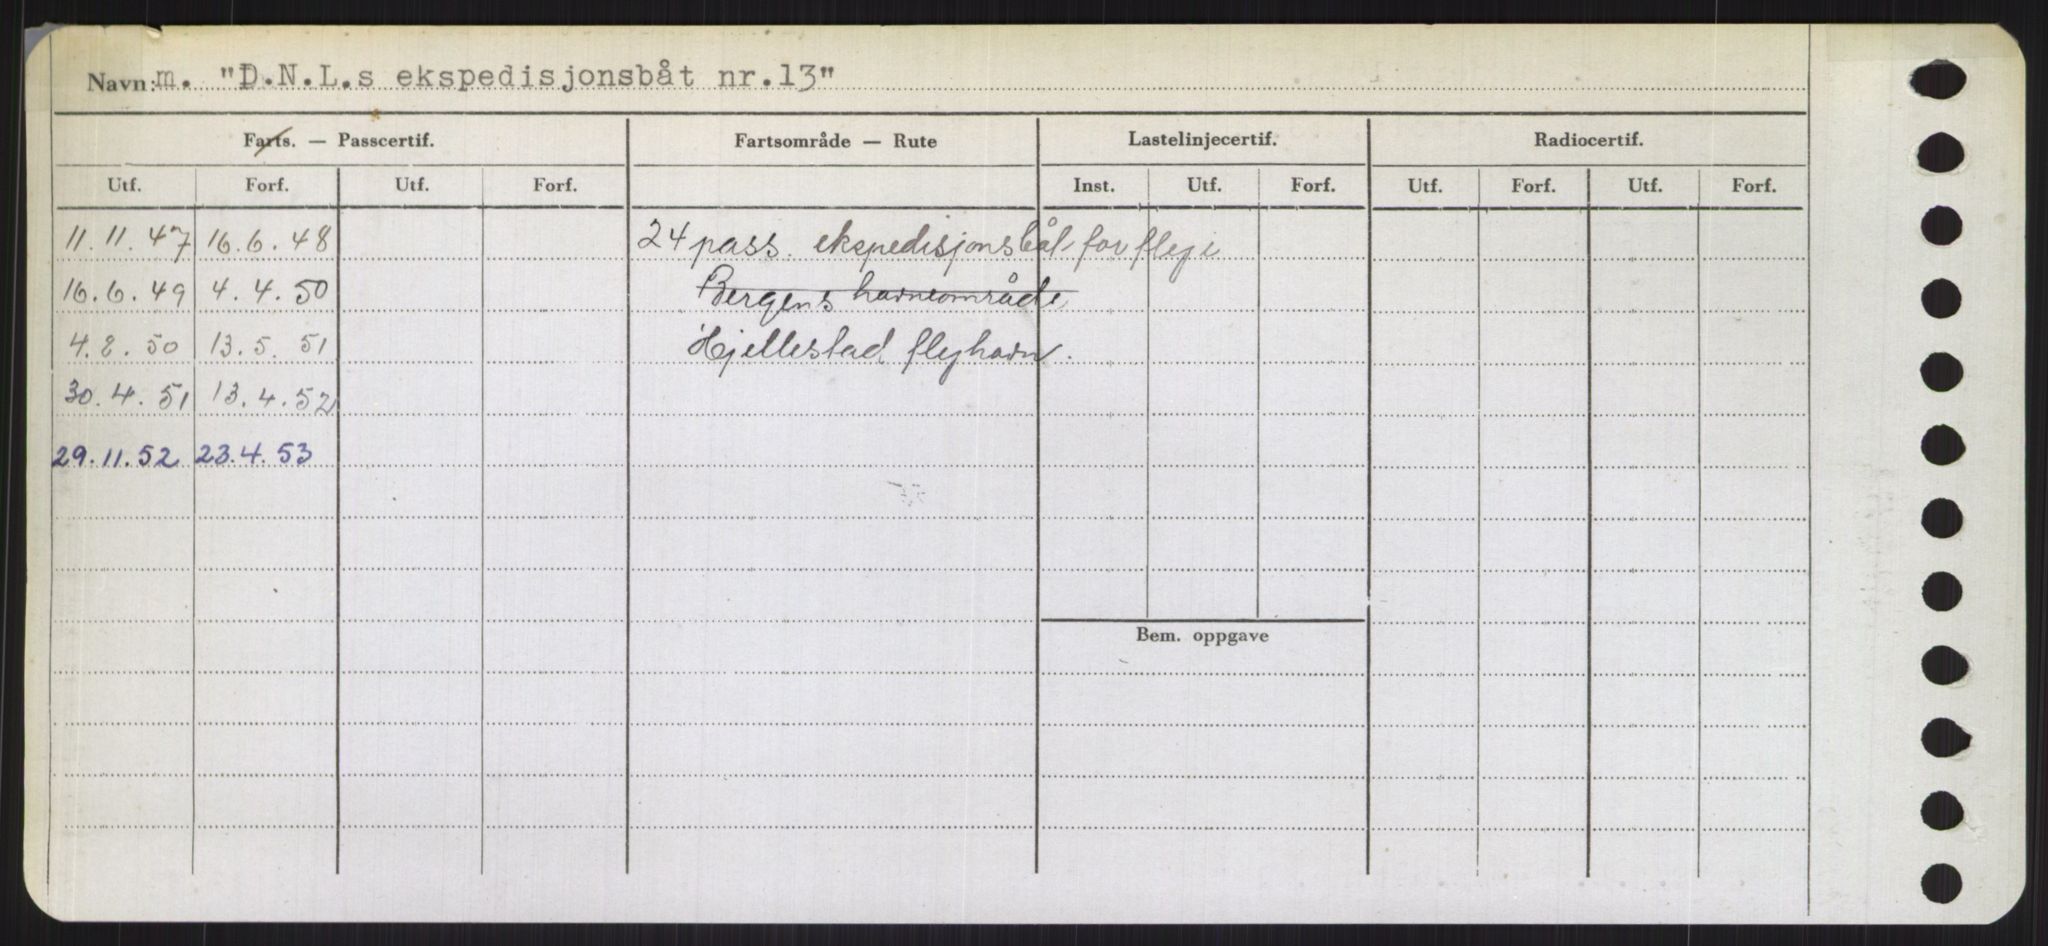 Navn: m. "D.N.L.s ekspedisjonsbåt nr.13"
Farts. — Passcertif. Fartsområde — Rute Lastelinjecertif. Radiocertif.
Utf. Forf. Utf. Forf. Inst. Utf. Forf. Utf. Forf. Utf. Forf.
11.11.47 16.6.48 24 pass. ekspedisjonsbåt for fly i
16.6.49 4.4.50 Bergens havneområde
4.8.50 13.5.51 Hjellestad flyhavn.
30.4.51 13.4.52
29.11.52 23.4.53
Bem. oppgave